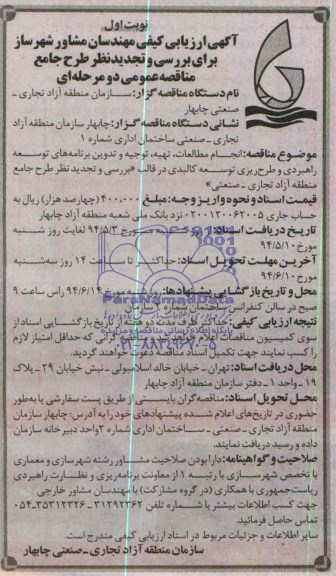 نوبت اول
آگهی ارزیابی کیفی مهندسان مشاور شهرساز
برای بررسی و تجدیدنظر طرح جامع
مناقصه عمومی دو مرحله‌ای
نام دستگاه مناقصه گزار: سازمان منطقه آزاد تجاری ـ
صنعتی چابهار
نشانی دستگاه مناقصه گزار: چابهار سازمان منطقه آزاد
تجاری ـ صنعتی ساختمان اداری شماره ۱
موضوع مناقصه: انجام مطالعات، تهیه، توجیه و تدوین برنامه‌های توسعه
راهبردی و طرح‌ریزی توسعه کالبدی در قالب «بررسی و تجدید نظر طرح جامع
منطقه آزاد تجاری ـ صنعتی»
قیمت اسناد و نحوه واریز وجه: مبلغ ۴۰۰،۰۰۰ (چهارصد هزار) ریال به
حساب جاری ۰۲۰۰۱۲۰۰۶۲۰۰۵ نزد بانک ملی شعبه منطقه آزاد چابهار
تاریخ دریافت اسناد: از روز شنبه مورخ ۹۴/۵/۳ لغایت روز شنبه
مورخ ۹۴/۵/۱۰
آخرین مهلت تحویل اسناد: حداکثر تا ساعت ۱۴ روز سه‌شنبه
مورخ ۹۴/۶/۱۰
محل و تاریخ بازگشایی پیشنهادها: روز شنبه مورخ ۹۴/۶/۱۴ راس ساعت ۹
صبح در سالن کنفرانس ساختمان شماره ۱ سازمان
نتیجه ارزیابی کیفی: حداکثر ظرف مدت دو هفته از تاریخ بازگشایی اسناد از
سوی کمیسیون مناقصات اعلام خواهد شد و مناقصه‌گرانی که حداقل امتیاز لازم
را کسب نمایند جهت تکمیل اسناد مناقصه دعوت خواهند گردید.
محل دریافت اسناد: تهران ـ خیابان خالد اسلامبولی ـ نبش خیابان ۲۹ ـ پلاک
۱۹ ـ واحد ۱ ـ دفتر سازمان منطقه آزاد چابهار
محل تحویل اسناد: مناقصه‌گران بایستی از طریق پست سفارشی یا به‌طور
حضوری در تاریخ‌های اعلام شده پیشنهادهای خود را به آدرس: چابهار سازمان
منطقه آزاد تجاری ـ صنعتی ـ ساختمان اداری شماره ۲ واحد دبیرخانه سازمان
داده و رسید دریافت نمایند.
صلاحیت و گواهینامه: دارا بودن صلاحیت مشاور رشته شهرسازی و معماری
با تخصص شهرسازی با رتبه ۱ از معاونت برنامه‌ریزی و نظارت راهبردی
ریاست‌جمهوری با همکاری (در گروه مشارکت) با مهندسان مشاور خارجی
جهت کسب اطلاعات بیشتر با شماره تلفن ۳۱۲۹۲۳۶۲ - ۳۵۳۱۲۳۳۶-۰۵۴
تماس حاصل فرمائید.
سایر اطلاعات و جزئیات مربوط در اسناد ارزیابی کیفی مندرج است.
سازمان منطقه آزاد تجاری ـ صنعتی چابهار
ParsNamadData
پایگاه اطلاع رسانی مناقصه و مزایده
۰۲۱-۸۸۳۴۹۶۷۰-۵